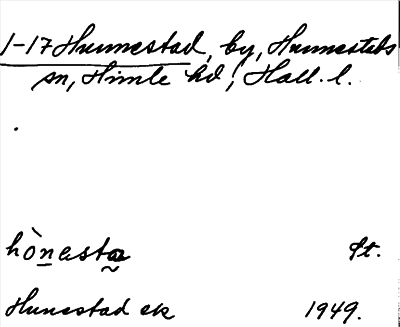 1-17 Hunnestad, by, Hunnestads
sn, Himle hd, Hall. l.
hònasta St.
Hunestad ek 1949.